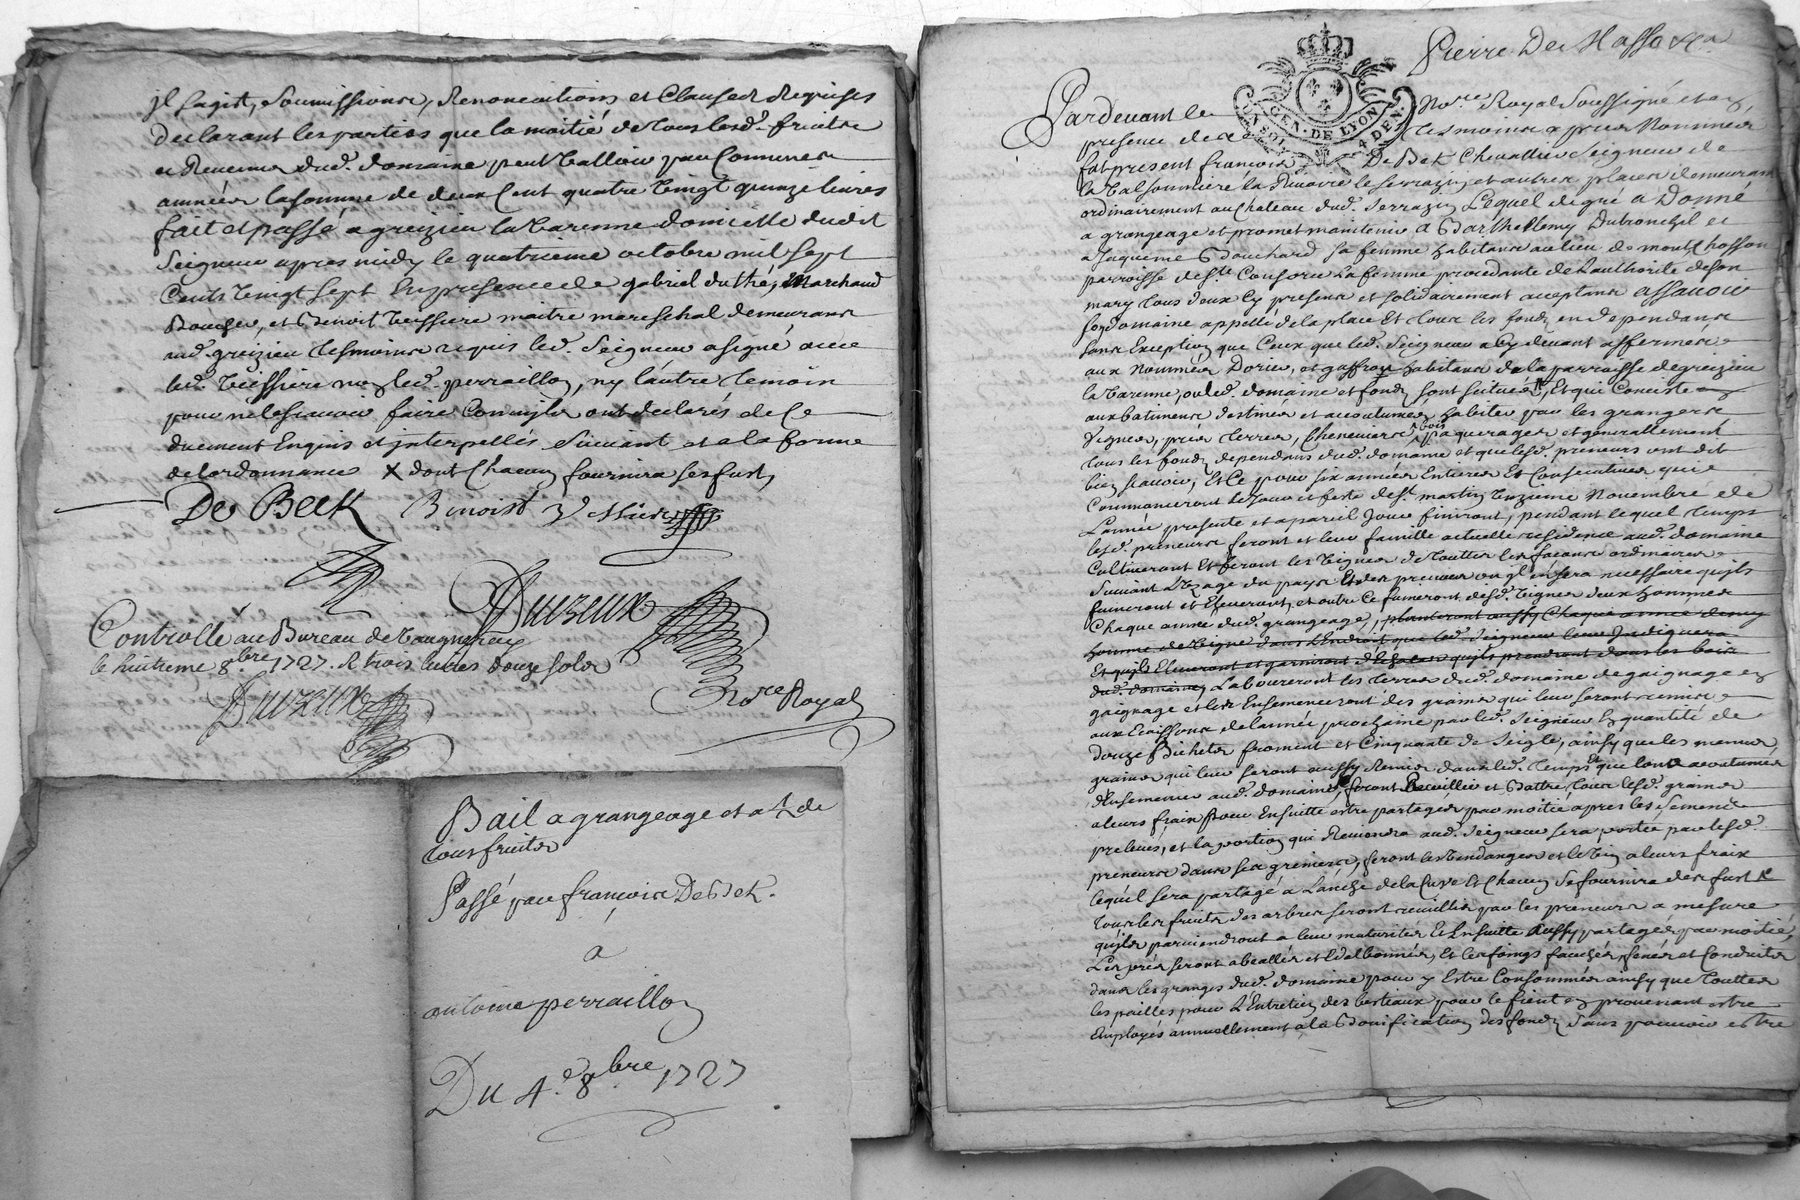 jl sagist, soumissions, Renonciations et Clauses Requises
declarant les parties que la moitié de tous lesd. fruits
et Revenus dud. domaine peut valloir par Communes
années la somme de deux Cent quatre vingt quinze livres
fait et passé a greizieu la varenne domicille dudit
Seigneur apres midy le quatrieme octobre mil sept
Cents vingt sept En presence de gabriel duthé, Marchand
Boucher, et Benoit veissiere maitre mareschal demeurans
aud. greizieu tesmoins requis led. Seigneur a signé avec
led. veissiere non led. perraillon, ny l'autre temoin
pour ne le scavoir faire Comm'ils ont declarés de Ce
duement Enquis et jnterpellés suivant et a la forme
de l'ordonnance X dont Chacun fournira ses futs
De Bek Benoist
Duvzeux
Controllé au Bureau de vaugneray
le huitieme 8bre 1727. R trois livres douze sols
Duvzeux
Nore Royal
Bail a grangeage et a ½ de
tous fruits
Passé par françois De Bek.
a
antoine perraillon
Du 4e 8bre 1727
Pierre De
GEN. DE LYON
4 DEN.
Pardevant le Nore Royal Soussigné et en
presence des tesmoins a pres Nommés
fut present françois De Bek Chevallier Seigneur de
la Valsonniere la Ruarie le serrazin et autres places demeurant
ordinairement au Chateau dud. serrazin Lequel de gré a Donné
a grangeage et promet maintenir a Barthellemy Dutronchil et
a Jaqueme Bouchard sa femme habitans au lieu de mont Chosson
parroisse de Ste Consorce la femme procedante de l'authorité de son
mary tous deux Cy presens et solidairement acceptans assavoir
son domaine appellé de la place Et tous les fonds en dependans
sans Exception que Ceux que led. Seigneur a Cy devant affermés
aux Nommés Dorieu, et gaffron habitans de la parroisse de greizieu
la varenne, ou led. domaine et fonds sont situés, Et qui Consiste en
aux batimens destinés et accoutumés habiter par les grangers
vignes, prés terres, Chenevieres bois paquerages et generallement
tous les fonds dependans dud. domaine et que lesd. preneurs ont dit
bien scavoir, Et Ce pour six années Entieres Et Consecutives qui
Commanceront le Jour et feste de St martin onzieme Novembre de
L'année presente et a pareil Jour finiront, pendant lequel temps
lesd. preneurs feront et leur famille actuelle residence aud. domaine
Cultiveront Et feront les vignes de touttes les façons ordinaires
suivant L'usage du pays Et des preneurs ou jl en sera necessaire quils
fumeront et Eleveront, et outre Ce fumeront desd. vignes deux hommes
Chaque année dud. grangeage, planteront aussy Chaque année demy
homme de vigne dans L'Endroit que led. Seigneur leur Jndiquera
Et quils Eleveront et garniront d'Echalas quils prendront dans les bois
dud. domaine, Laboureront les terres dud. domaine de gaignage en
gaignage et les Ensemenceront des grains qui leur seront remis
aux Ecaissons de l'année prochaine par led. Seigneur En quantité de
douze Bichets froment et Cinquante de seigle, ainsy que les menus
grains qui leur seront aussy Remis dans led. temps et que l'on a accoutumé
d'Ensemencer aud. domaine, feront Recueillir et Battre tous lesd. grains
a leurs frais pour Ensuitte estre partagés par moitié apres les semences
prelevés, et la portion qui Reviendra aud. Seigneur sera portée par lesd.
preneurs dans ses greniers, feront les vendanges et le vin a leurs fraix
lequel sera partagé a L'anche de la Cuve Et Chacun se fournira des futs
tous les fruits des arbres seront recueillis par les preneurs a mesure
quils parviendront a leur maturités Et Ensuitte aussy partagés par moitié,
Les prés seront abeallés et Edelbonnés, Et les foings fauchés, fenés et Conduits
dans les granges dud. domaine pour y Estre Consommés ainsy que touttes
les pailles pour L'Entretien des bestiaux pour le fient en provenant estre
Employés annuellement a la Bonification des fonds sans pouvoir estre